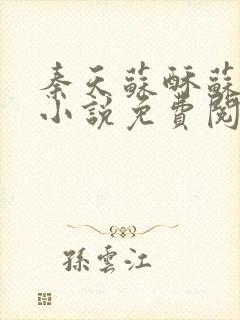 秦天蘇酥蘇
小說免費閱
孫雲江